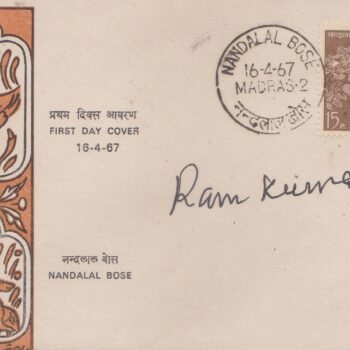 NANDALAL BOSE
16-4-67
MADRAS-2
नन्दलाल बोस
नन्दलाल
15
प्रथम दिवस आवरण
FIRST DAY COVER
16-4-67
Ram Kumar
नन्दलाल बोस
NANDALAL BOSE